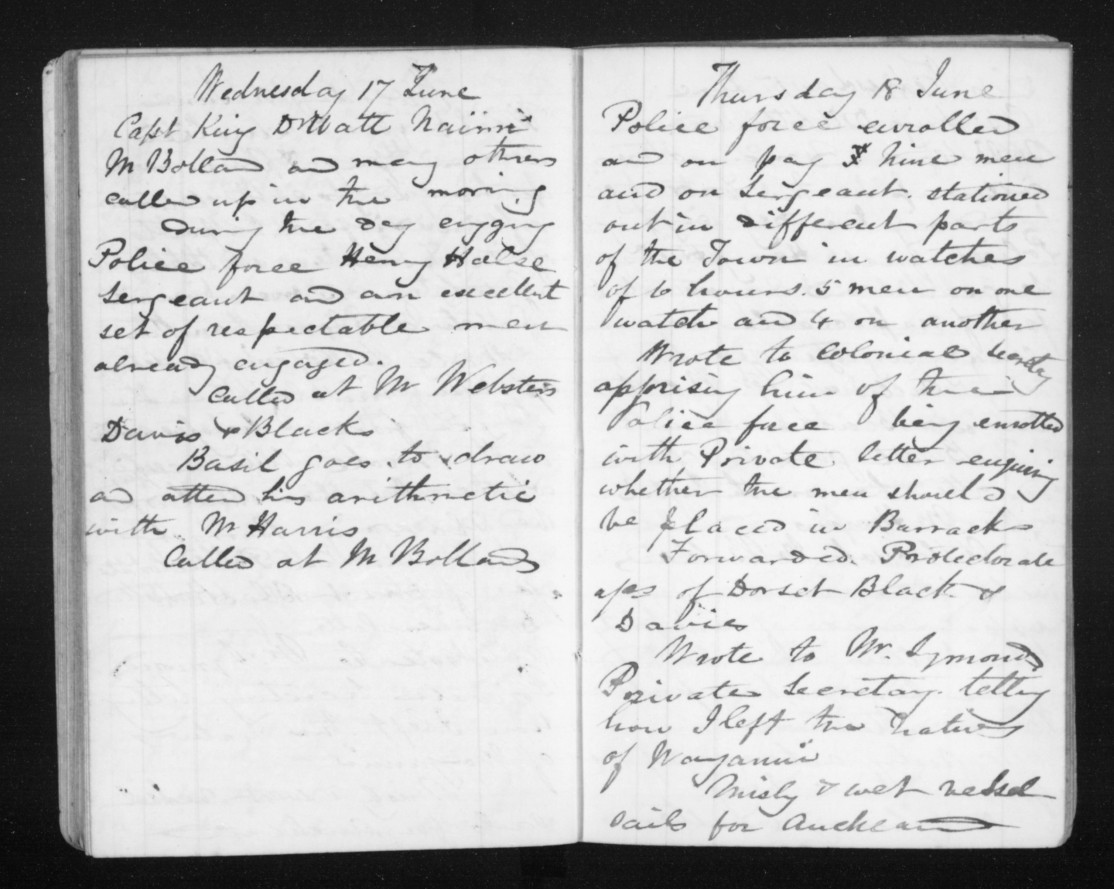 Wednesday 17 June
Capt King Dr Watt Nairn
Mr Bolland and many others
called up in the morning
during the day engaging
Police force Henry Halse
Sergeant and an excellent
set of respectable men
already engaged.
Called at Mr Websters
Davis & Blacks
Basil goes to draw
and attend his arithmetic
with Mr Harris
Called at Mr Bollands
Thursday 18 June
Police force enrolled
and on pay nine men
and on Sergeant stationed
out in different parts
of the Town in watches
of 10 hours. 5 men on one
watch and 4 on another
Wrote to Colonial Secretary
apprising him of the
Police force being enrolled
with Private letter enquiring
whether the men should
be placed in Barracks
Forwarded Protectorate
of Dorset Black &
Davies
Wrote to Mr. Symonds
Private Secretary telling
how I left the natives
of Wanganui
Misty & wet vessel
sails for Auckland